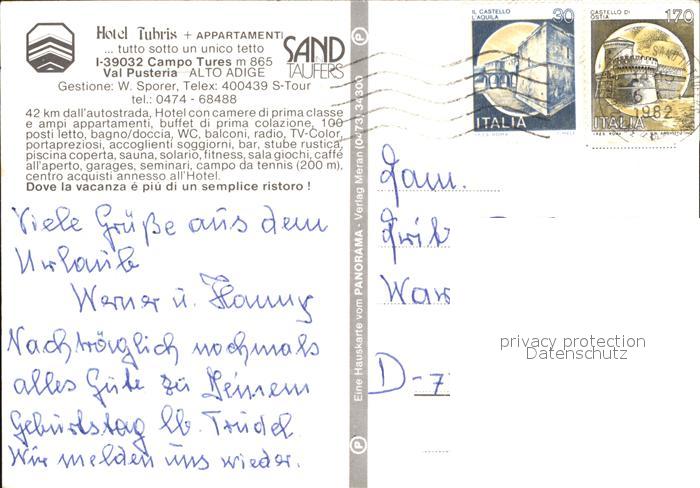 Hotel Tubris + APPARTAMENTI
... tutto sotto un unico tetto
I-39032 Campo Tures m 865
Val Pusteria ALTO ADIGE
Gestione: W. Sporer, Telex: 400439 S-Tour
tel.: 0474 - 68488
SAND
IN TAUFERS
42 km dall'autostrada, Hotel con camere di prima classe
e ampi appartamenti, buffet di prima colazione, 100
posti letto, bagno/doccia, WC, balconi, radio, TV-Color,
portapreziosi, accoglienti soggiorni, bar, stube rustica,
piscina coperta, sauna, solario, fitness, sala giochi, caffé
all'aperto, garages, seminari, campo da tennis (200 m),
centro acquisti annesso all'Hotel.
Dove la vacanza é piú di un semplice ristoro !
Viele Grüße aus dem
Urlaub
Werner u. Hanny
Nachträglich nochmals
alles Gute zu Deinem
Geburtstag lb. Trudel
Wir melden uns wieder.
Eine Hauskarte vom PANORAMA - Verlag Meran (0473) 34300
IL CASTELLO
L'AQUILA
30
ITALIA
CASTELLO DI
OSTIA
170
ITALIA
1982
Fam.
War
D-7
privacy protection
Datenschutz